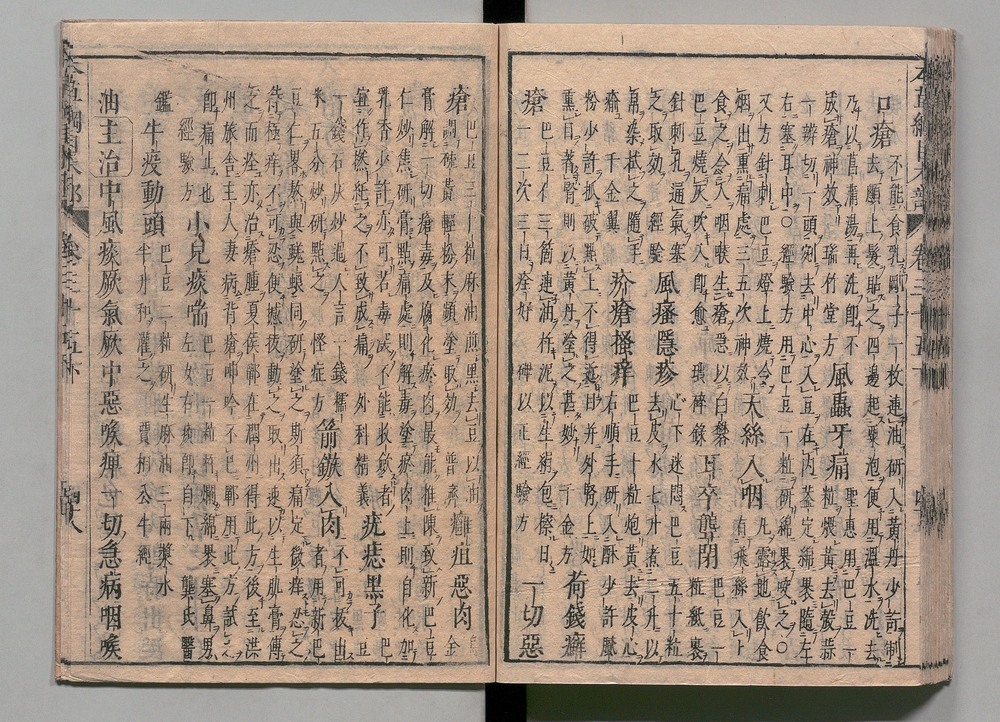 本草綱目木部 卷三十五下
口瘡 不能食乳剛子一枚連油研入黃丹少許制
去顖上髮貼之四邊起粟泡便用溫水洗去
乃以菖蒲湯再洗即不
成瘡神效瑞竹堂方 風蟲牙痛 聖惠用巴豆一
粒煨黃去殼蒜
一瓣切一頭剜去中心入豆在內蒸定綿裹隨左
右塞耳中○經驗方用巴豆一粒研綿裹咬之○
又方針刺巴豆燈上燒令
烟出熏痛處三五次神效 天絲入咽 凡露飽飲食
有飛絲入上
食之令人咽喉生瘡急以白礬
巴豆燒灰吹入即愈瑣碎錄 耳卒聾閉 巴豆一
粒紙裹
針刺孔通氣塞
之取效經驗 風瘙隱疹 心下迷悶巴豆五十粒
去皮水七升煮三升以
帛染拭之隨手
瘉千金翼 疥瘡搔痒 巴豆十粒炮黃去皮心
右順手研入酥少許膩
粉少許抓破點上不得近目并外腎上如
熏目著腎則以黃丹塗之甚妙千金方 荷錢癬
瘡 巴豆仁三箇連油杵泥以生絹包擦日
一二次三日痊好碑以正經驗方 一切惡
瘡 巴豆三十粒麻油煎黑去豆以油
調硫黃輕粉末頻塗取效普濟 癰疽惡肉 烏
金
膏解一切瘡毒及腐化瘀肉最能推陳致新巴豆
仁炒焦研膏點痛處則解毒塗瘀肉上則自化加
乳香少許亦可若毒深不能收斂者
宜作撚紝之不致成痛外科精義 疣痣黑子 巴
豆
一錢石灰炒過人言一錢糯
米五分炒研點之怪症方 箭鏃入肉 不可拔出
者用新巴
豆仁略熬與蜣蜋同研塗之斯須痛定微痒忍之
待極痒不可忍便撼拔動之取出速以生肌膏傅
之而痊亦治瘡腫夏侯鄲在潤州得此方後至洪
州旅舍主人妻病背瘡呻吟不已鄲用此方試之
即痛止也
經驗方 小兒痰喘 巴豆一粒杵爛綿裹塞鼻男
左女右痰即自下龔氏醫
鑑 牛疫動頭 巴豆二粒研生麻油三兩漿水
半升和灌之賈相公牛經
油主治中風痰厥氣厥中惡喉痹一切急病咽喉
本草綱目木部 卷三十五下